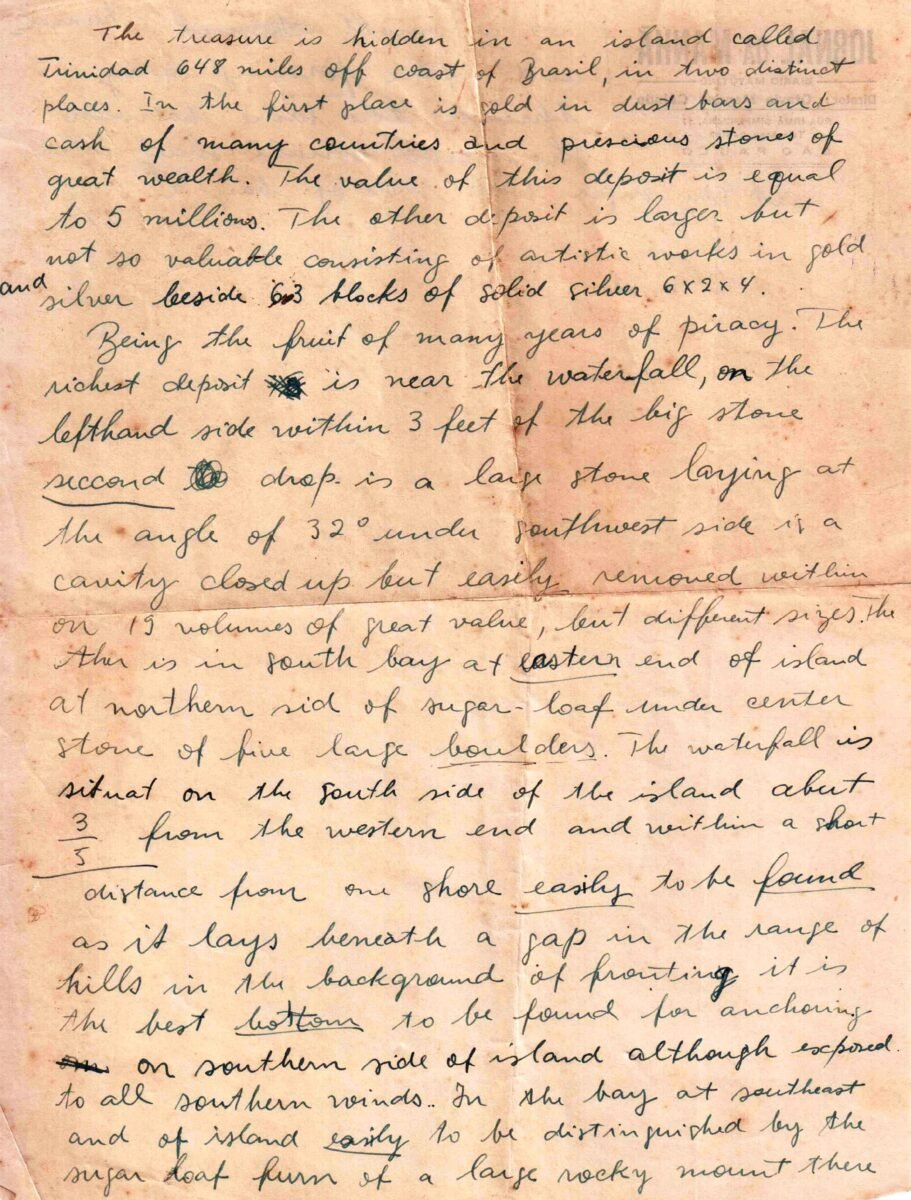 The treasure is hidden in an island called
Trinidad 648 miles off coast of Brasil, in two distinct
places. In the first place is gold in dust bars and
cash of many countries and prescious stones of
great wealth. The value of this deposit is equal
to 5 millions. The other deposit is larger but
not so valuable consisting of artistic works in gold
and silver beside 63 blocks of solid silver 6x2x4.
Being the fruit of many years of piracy. The
richest deposit is near the waterfall, on the
lefthand side within 3 feet of the big stone
seccond drop is a large stone laying at
the angle of 32° under southwest side is a
cavity closed up but easily removed within
on 19 volumes of great value, but different sizes. The
ther is in south bay at eastern end of island
at northern sid of sugar-loaf under center
stone of five large boulders. The waterfall is
situat on the south side of the island abut
3/5 from the western end and within a short
distance from one shore easily to be found
as it lays beneath a gap in the range of
hills in the background of fronting it is
the best bottom to be found for anchoring
on southern side of island although exposed
to all southern winds.. In the bay at southeast
and of island easily to be distinguished by the
sugar loaf furm of a large rocky mount there